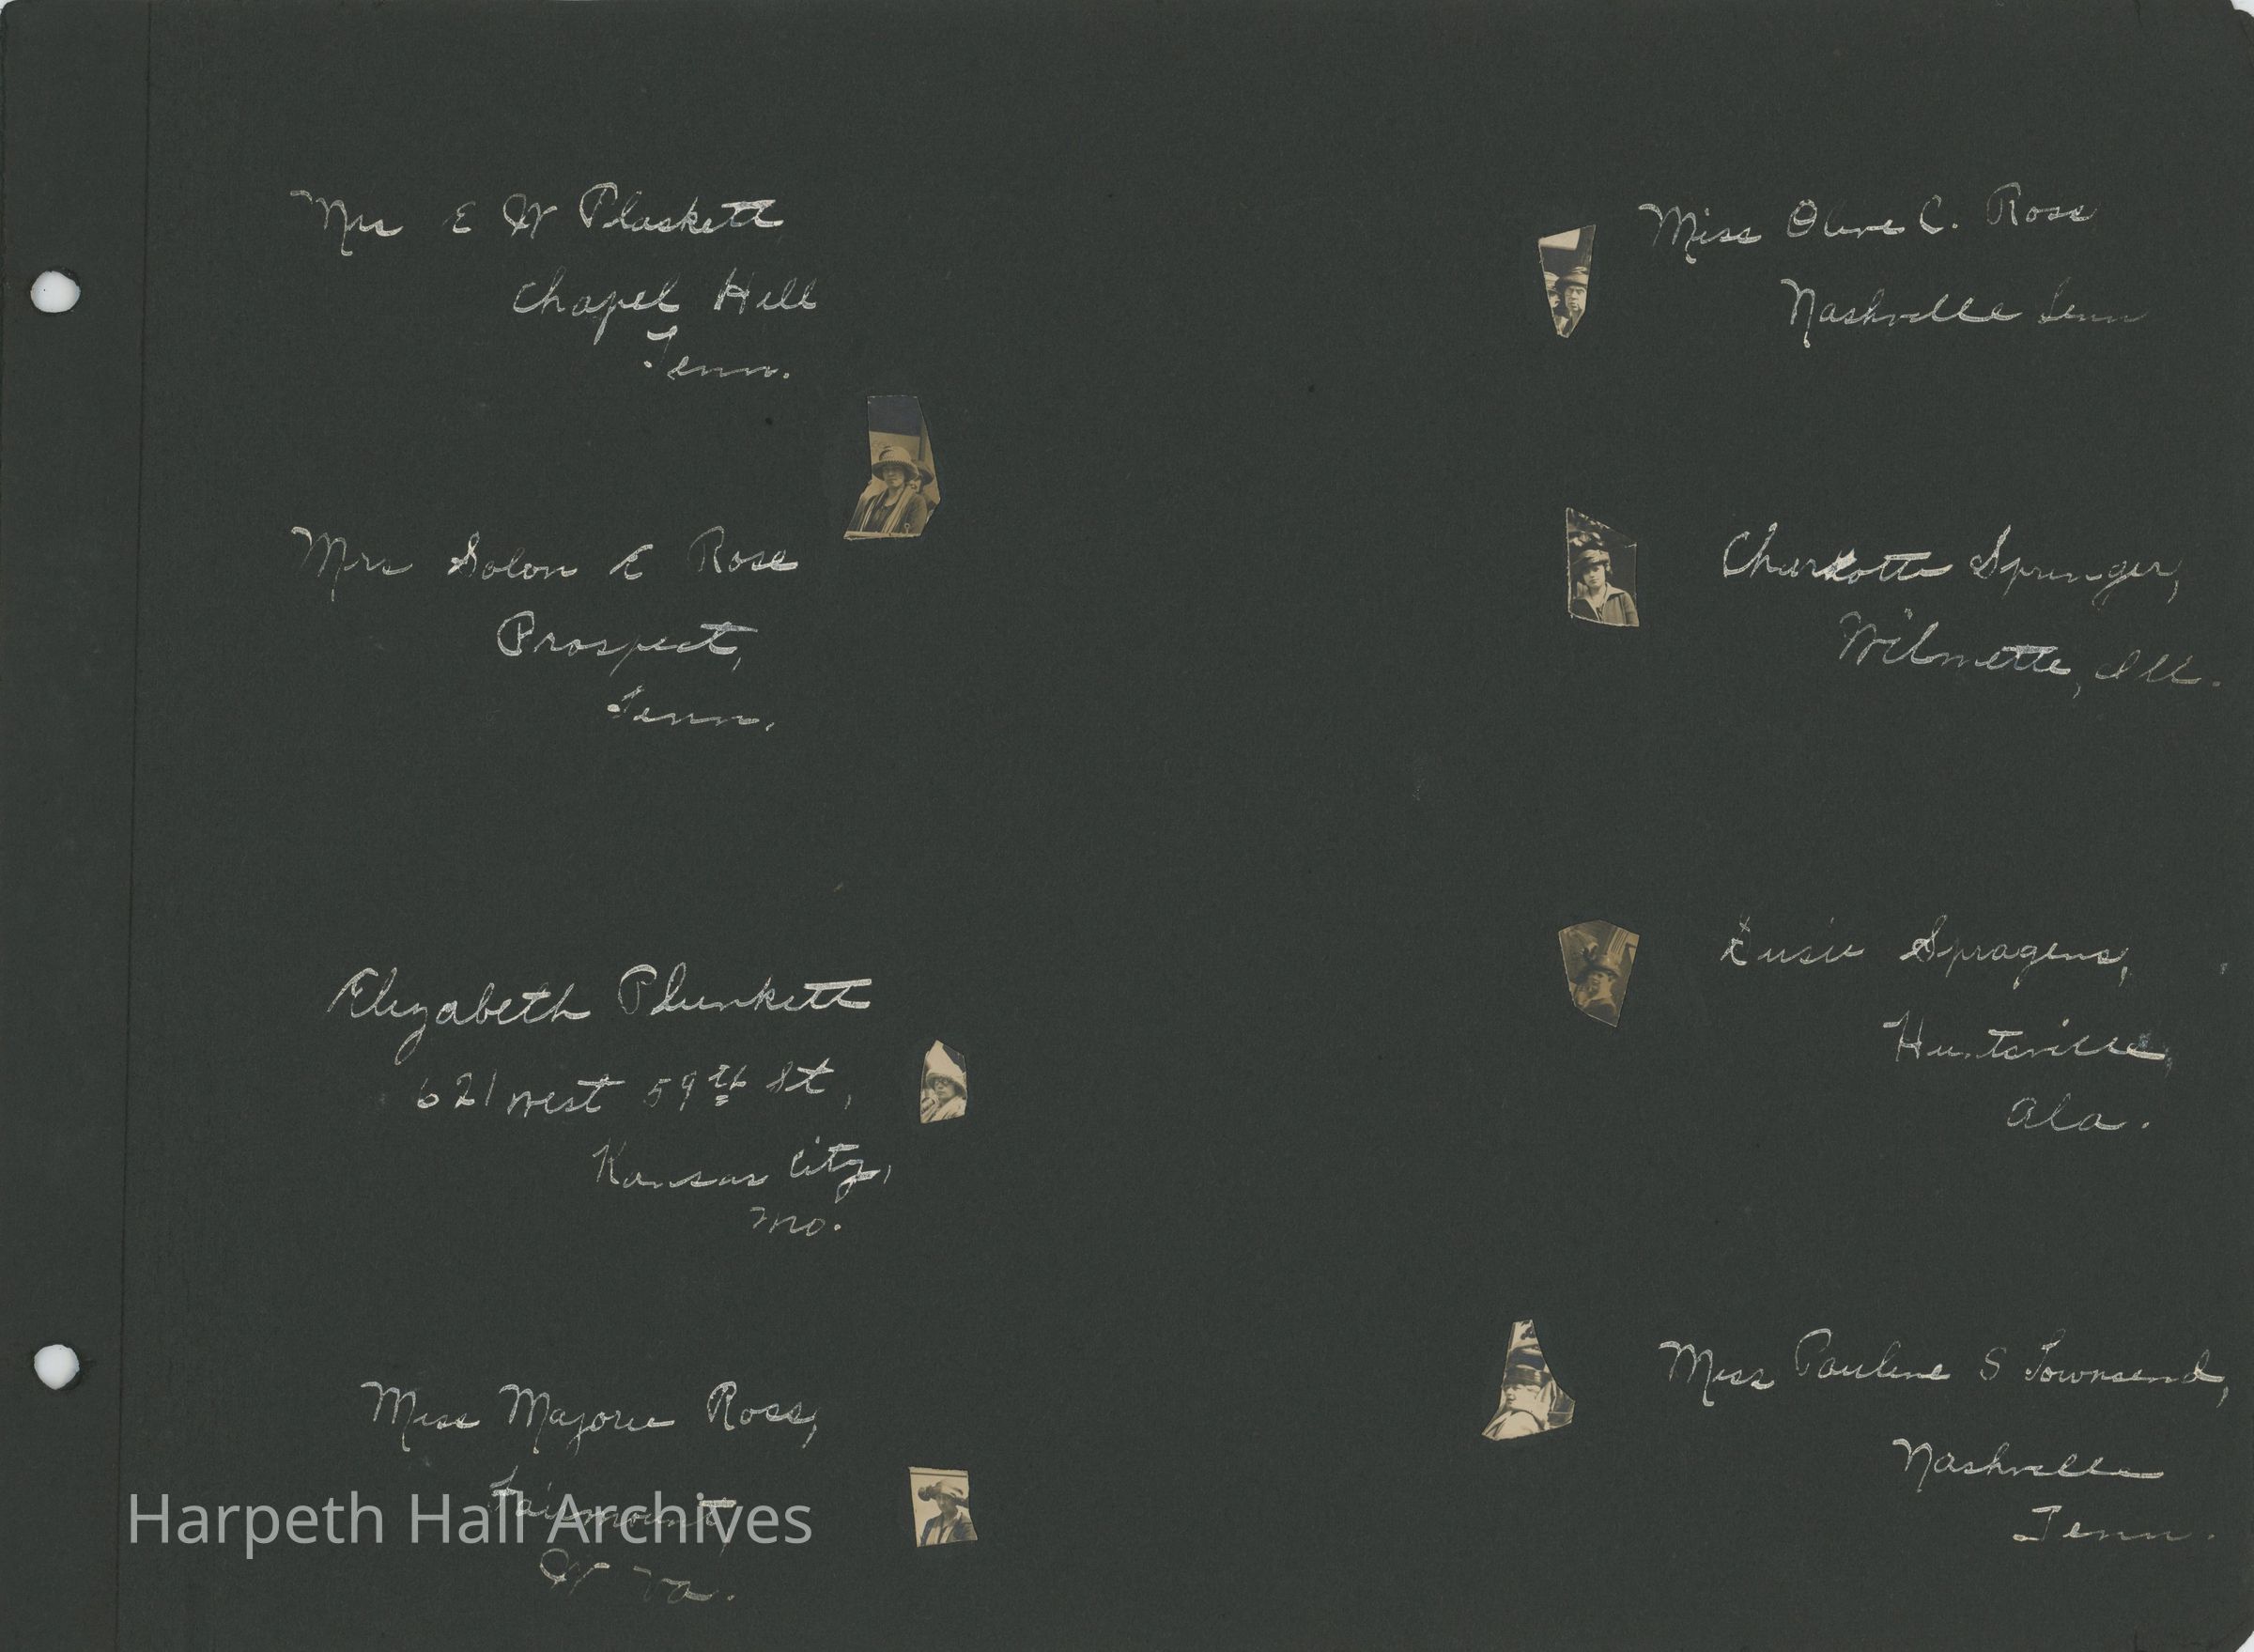 Mrs E W Plaskett
Chapel Hill
Tenn.
Mrs Solon E Rose
Prospect,
Tenn.
Elizabeth Plunkett
621 West 59th St,
Kansas City,
Mo.
Miss Majorie Ross,
Fairmount,
W Va.
Harpeth Hall Archives
Miss Olive C. Ross
Nashville Tenn
Charlotte Springer,
Wilmette, Ill.
Susie Spragens,
Huntsville,
Ala.
Miss Pauline S Townsend,
Nashville
Tenn.